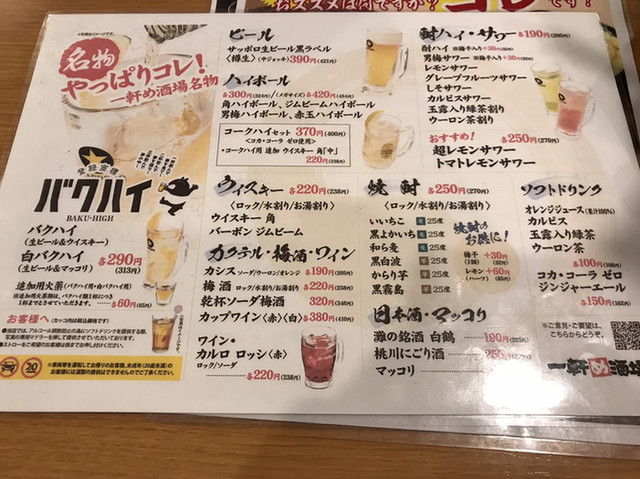 おススメは何ですか？
コレ
です！
名物
やっぱりコレ！
一軒め酒場名物
登録商標
バクハイ
BAKU-HIGH
バクハイ
(生ビール&ウイスキー)
白バクハイ
(生ビール&マッコリ)
各290円
(313円)
追加用火薬(バクハイ用・白バクハイ用)
※追加用火薬類は、バクハイ1杯につき
1杯までとさせていただきます。
各60円(65円)
お客様へ (カッコ内は税込価格です)
ビール
サッポロ生ビール黒ラベル
〈樽生〉(中ジョッキ) 390円(421円)
ハイボール
各300円(324円)/〈メガサイズ〉各420円(454円)
角ハイボール、ジムビームハイボール
男梅ハイボール、赤玉ハイボール
コークハイセット 370円(400円)
〈コカ・コーラ ゼロ使用〉
・コークハイ用 追加 ウイスキー 角「中」
220円(238円)
ウィスキー 各220円(238円)
〈ロック/水割り/お湯割り〉
ウイスキー 角
バーボン ジムビーム
カクテル・梅酒・ワイン
カシス ソーダ/ウーロン/オレンジ 各190円(205円)
梅酒 ロック/水割り/お湯割り 各220円(238円)
乾杯ソーダ梅酒 320円(346円)
カップワイン〈赤〉〈白〉各380円(410円)
ワイン・
カルロ ロッシ〈赤〉
ロック/ソーダ
各220円(238円)
酎ハイ・サワー 各190円(205円)
酎ハイ ※梅干入り+30円(32円)
男梅サワー ※梅干入り+30円(32円)
レモンサワー
グレープフルーツサワー
しそサワー
カルピスサワー
玉露入り緑茶割り
ウーロン茶割り
おすすめ! 各250円(270円)
超レモンサワー
トマトレモンサワー
焼酎 各250円(270円)
〈ロック/水割り/お湯割り〉
いいちこ 麦 25度
黒よかいち 麦 25度
和ら麦 麦 25度
黒白波 芋 25度
からり芋 芋 25度
黒霧島 芋 25度
焼酎のお供に!
梅干(1個) +30円(32円)
レモン(半分) +60円(65円)
日本酒・マッコリ
灘の銘酒 白鶴 190円(205円)
桃川にごり酒 250円(270円)
マッコリ
ソフトドリンク
オレンジジュース(果汁100%)
カルピス
玉露入り緑茶
ウーロン茶
各100円(108円)
コカ・コーラ ゼロ
ジンジャーエール
各150円(162円)
※ご意見・ご要望は、
こちらからどうぞ。
一軒め酒場